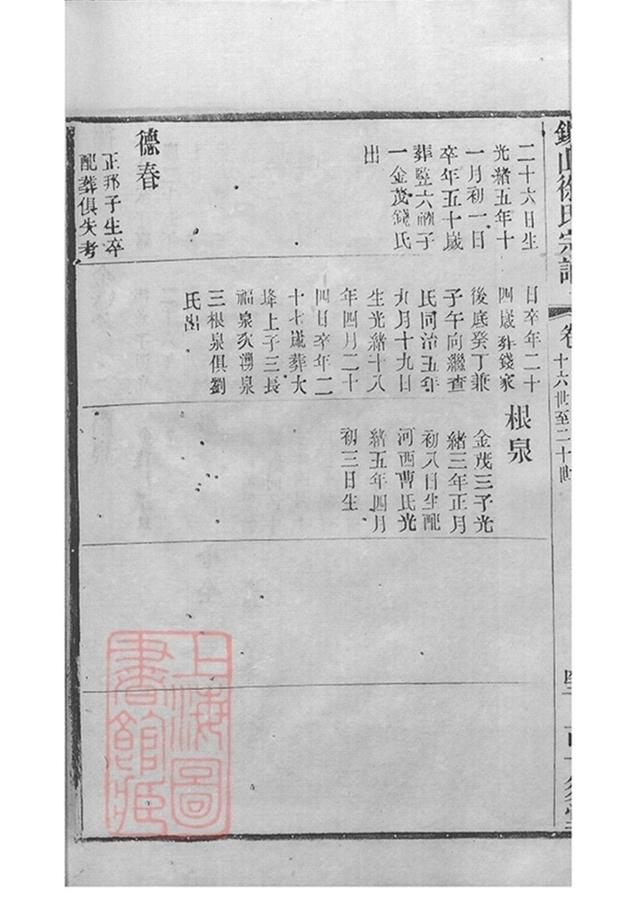 徐氏宗譜
卷
十六世至二十世
二十六日生
光緒五年十
一月初一日
卒年五十歲
葬監六
子
一金茂錢氏
出
德春
正邦子生卒
配葬俱失考
日卒年二十
四歲葬錢家
後底癸丁兼
子午向繼查
氏同治五年
九月十九日
生光緒十八
年四月二十
四日卒年二
十七歲葬大
上子三長
福泉次泉
三根泉俱劉
氏出
根泉
金茂三子光
緒三年正月
初八日生配
河西曹氏光
緒五年四月
初三日生
上海圖
書館藏